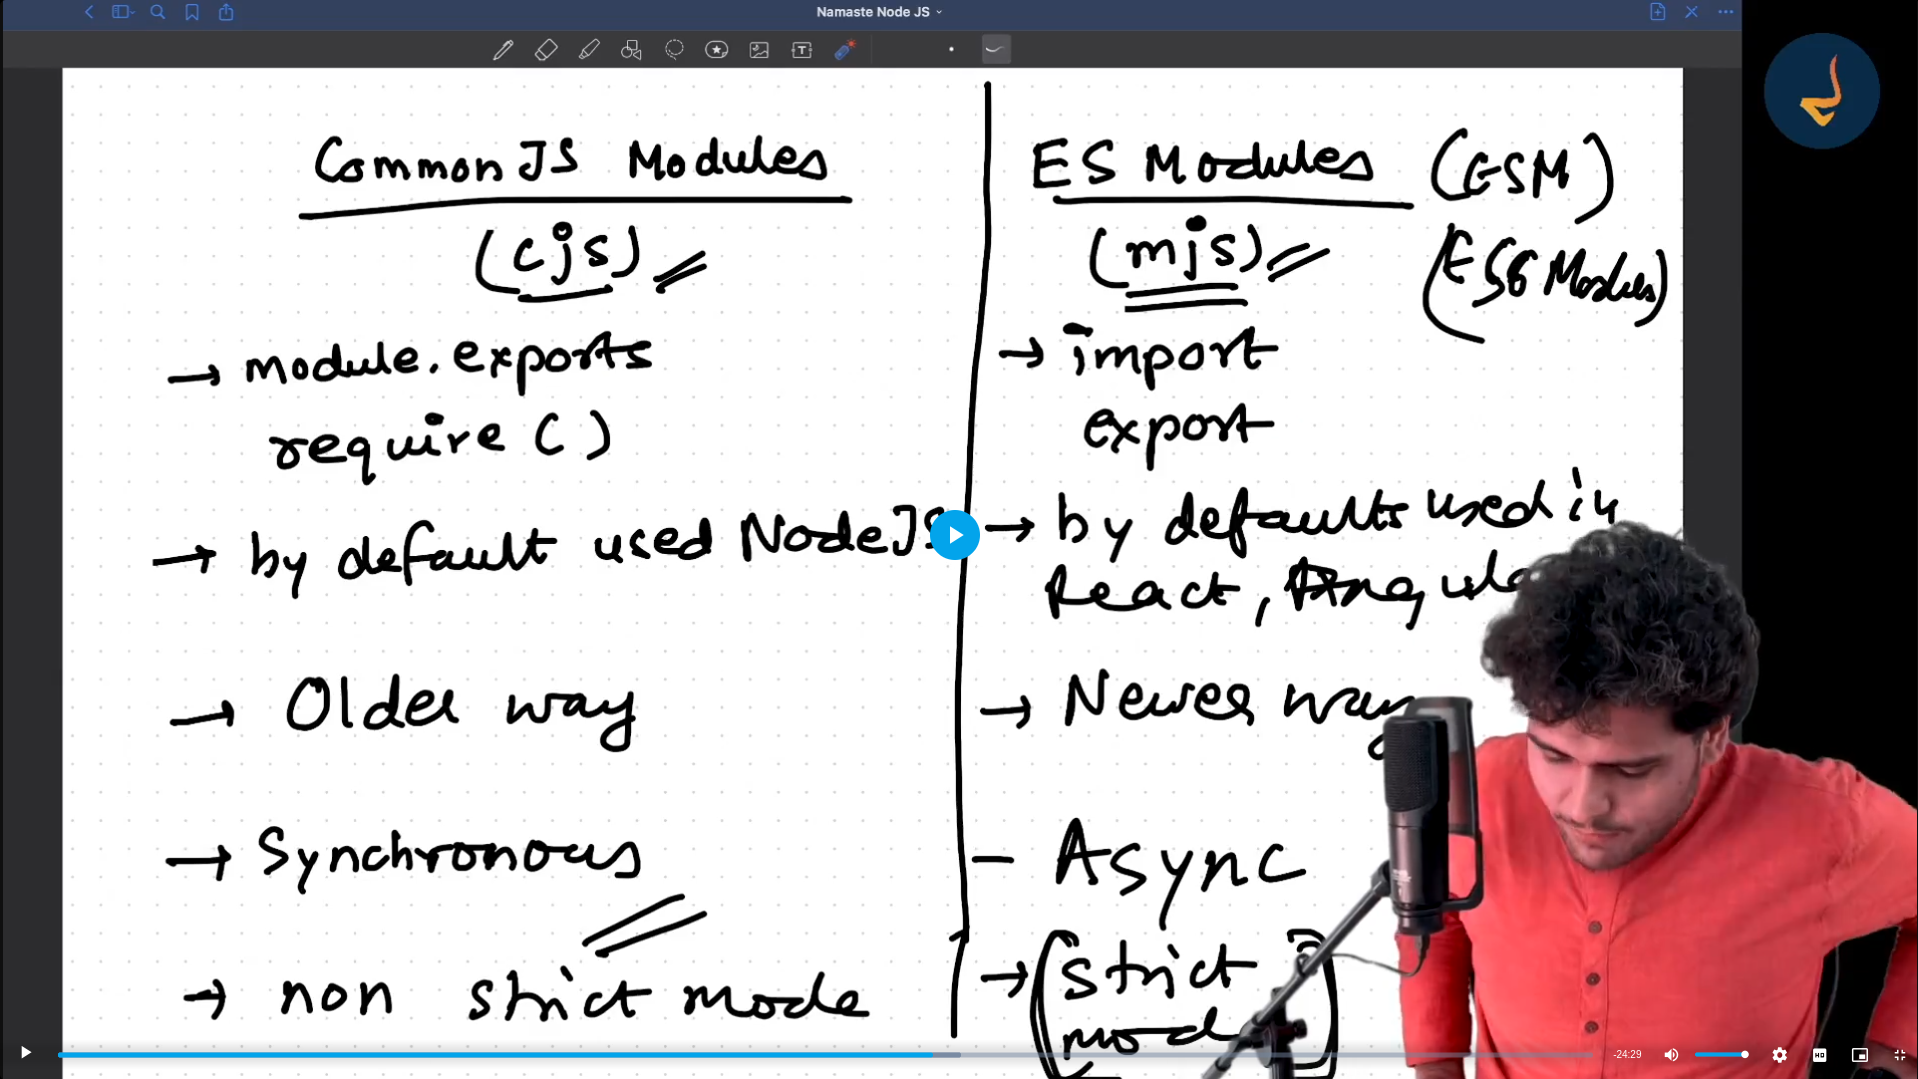 Namaste Node JS
CommonJS Modules
(cjs)
→ module.exports
require ( )
→ by default used NodeJS
→ Older way
→ Synchronous
→ non strict mode
ES Modules (ESM)
(mjs) (ES6 Modules)
→ import
export
→ by defaults used in
React,
→ Newer way
- Async
→ (strict
-24:29
HD